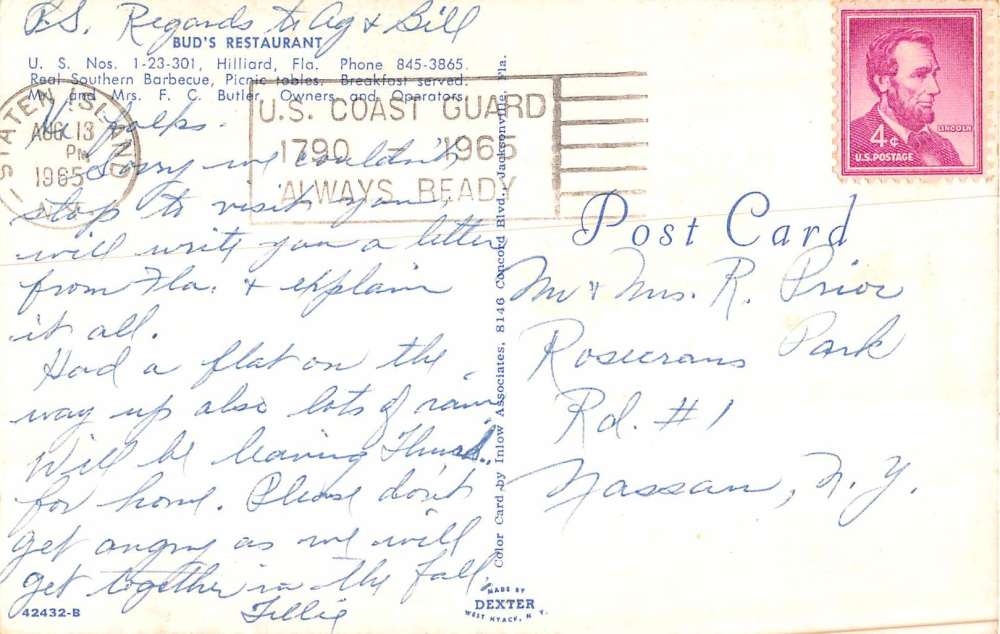 P.S. Regards to Ag & Bill
BUD'S RESTAURANT
U. S. Nos. 1-23-301, Hilliard, Fla. Phone 845-3865.
Real Southern Barbecue, Picnic tables. Breakfast served.
Mr. and Mrs. F. C. Butler, Owners and Operators.
STATEN ISLAND
AUG 13
PM
1965
N.Y.
U.S. COAST GUARD
1790 - 1965
ALWAYS READY
4¢
LINCOLN
U.S. POSTAGE
Hi folks.
Sorry we couldn't
stop to visit you,
will write you a letter
from Fla. & explain
it all.
Had a flat on the
way up also lots of rain.
Will be leaving Thurs.
for home. Please don't
get angry as we will
get together in the fall.
Tillie
42432-B
Color Card by Inlow Associates, 8146 Concord Blvd., Jacksonville, Fla.
MADE BY
DEXTER
WEST NYACK, N. Y.
Post Card
Mr & Mrs. R. Prior
Rosecrans Park
Rd. #1
Nassau, N.Y.